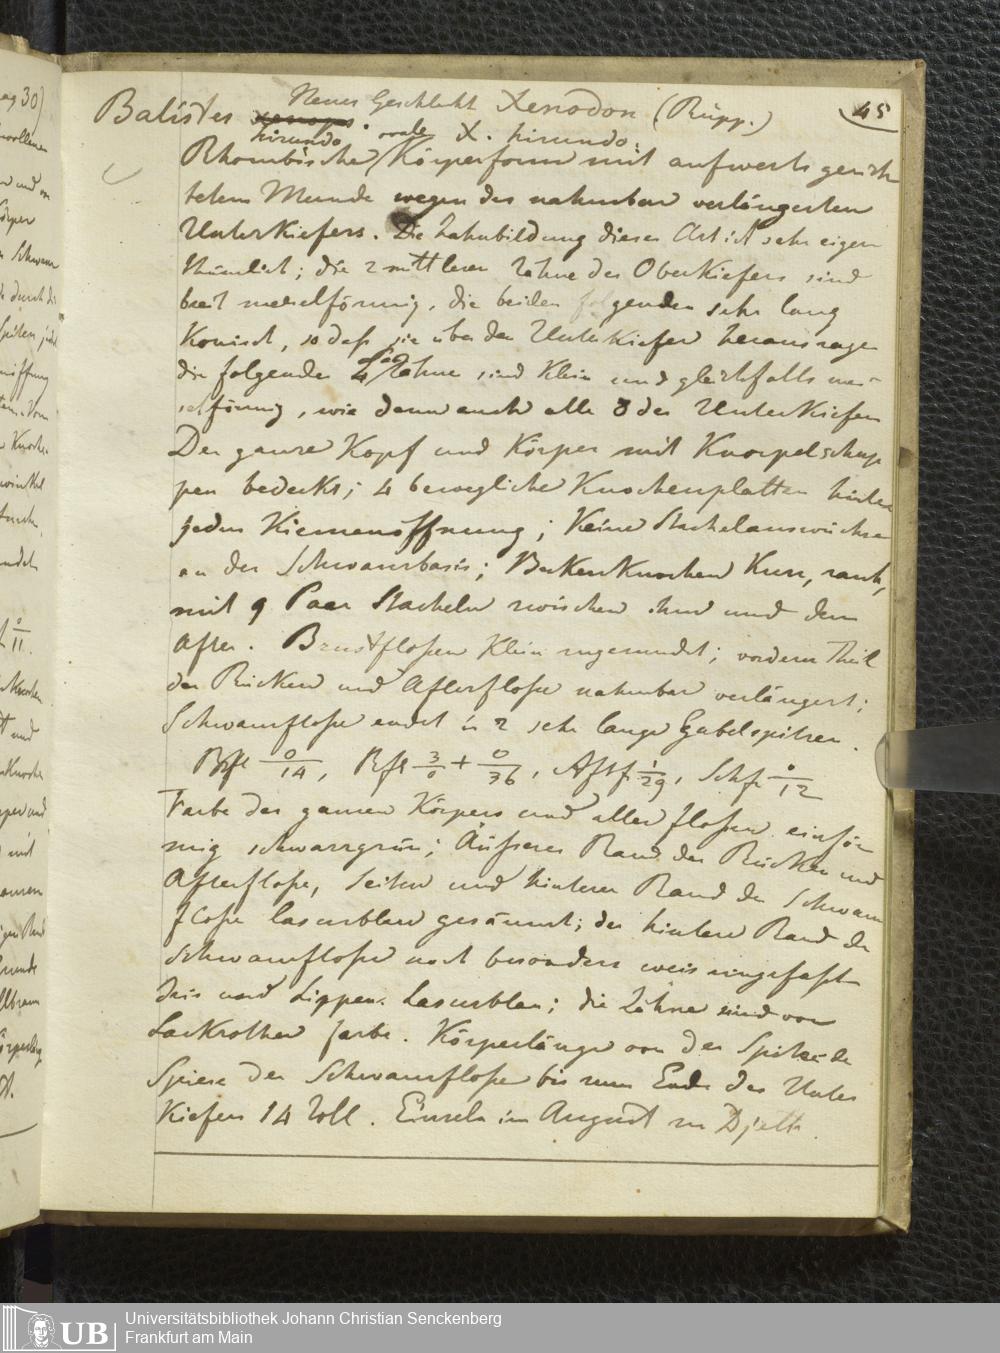 45
Neues Geschlecht Xenodon (Rüpp.)
Balistes xenops.
hirundo oder X. hirundo.
Rhombische Körperform mit aufwerts gerich
tetem Munde wegen des nahmbar verlängerten
Unterkiefers. Die Zahnbildung dieser Art ist sehr eigen
thümlich; die 2 mittleren Zähne des Oberkiefers sind
breit meiselförmig, die beiden folgenden sehr lang
Konisch, so daß sie über den Unterkiefer herausragen
die folgenden 4 Zähne sind Klein und gleichfalls mei-
selförmig, wie dann auch alle 8 des Unterkiefers
Der ganze Kopf und Körper mit Knorpelschup
pen bedeckt; 4 bewegliche Knochenplatten hinter
jeder Kiemenöffnung; Keine Stachelauswüchse
an der Schwanzbasis; Beckenknochen Kurz, rauh,
mit 9 Paar Stacheln zwischen ihm und dem
After. Brustfloßen Klein zugerundet; vordern Theil
der Rücken und Afterfloße nahmbar verlängert;
Schwanzfloße endet in 2 sehr lange Gabelspitzen.
Bfl 0/14, Rfl 3/0 + 0/36, Aftf 1/29, Schf 0/12
Farbe des ganzen Körpers und aller Floßen einför
mig schwarzgrün; Äußerer Rand der Rücken und
Afterfloße, Seiten und hinterer Rand der Schwanz
floße lasurblau gesäumt; der hintere Rand der
Schwanzfloße noch besonders weis eingefaßt
Iris und Lippen Lasurblau; die Zähne sind von
Lackrother farbe. Körperlänge von der Spitze der
Spiese der Schwanzfloße bis zum Ende des Unter
Kiefers 14 Zoll. Einzeln im August zu Djetta.
UB
Universitätsbibliothek Johann Christian Senckenberg
Frankfurt am Main